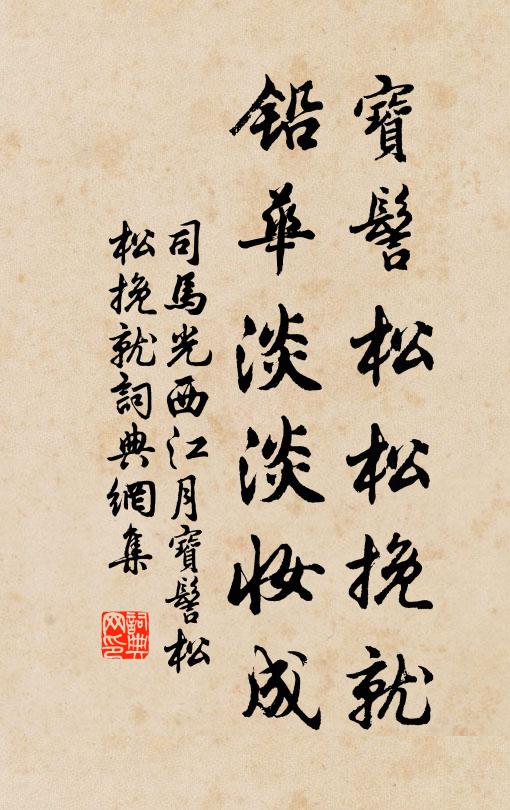 寶髻松松挽就
鉛華淡淡妝成
司馬光西江月寶髻松
松挽就詞典網集
詞典
网印